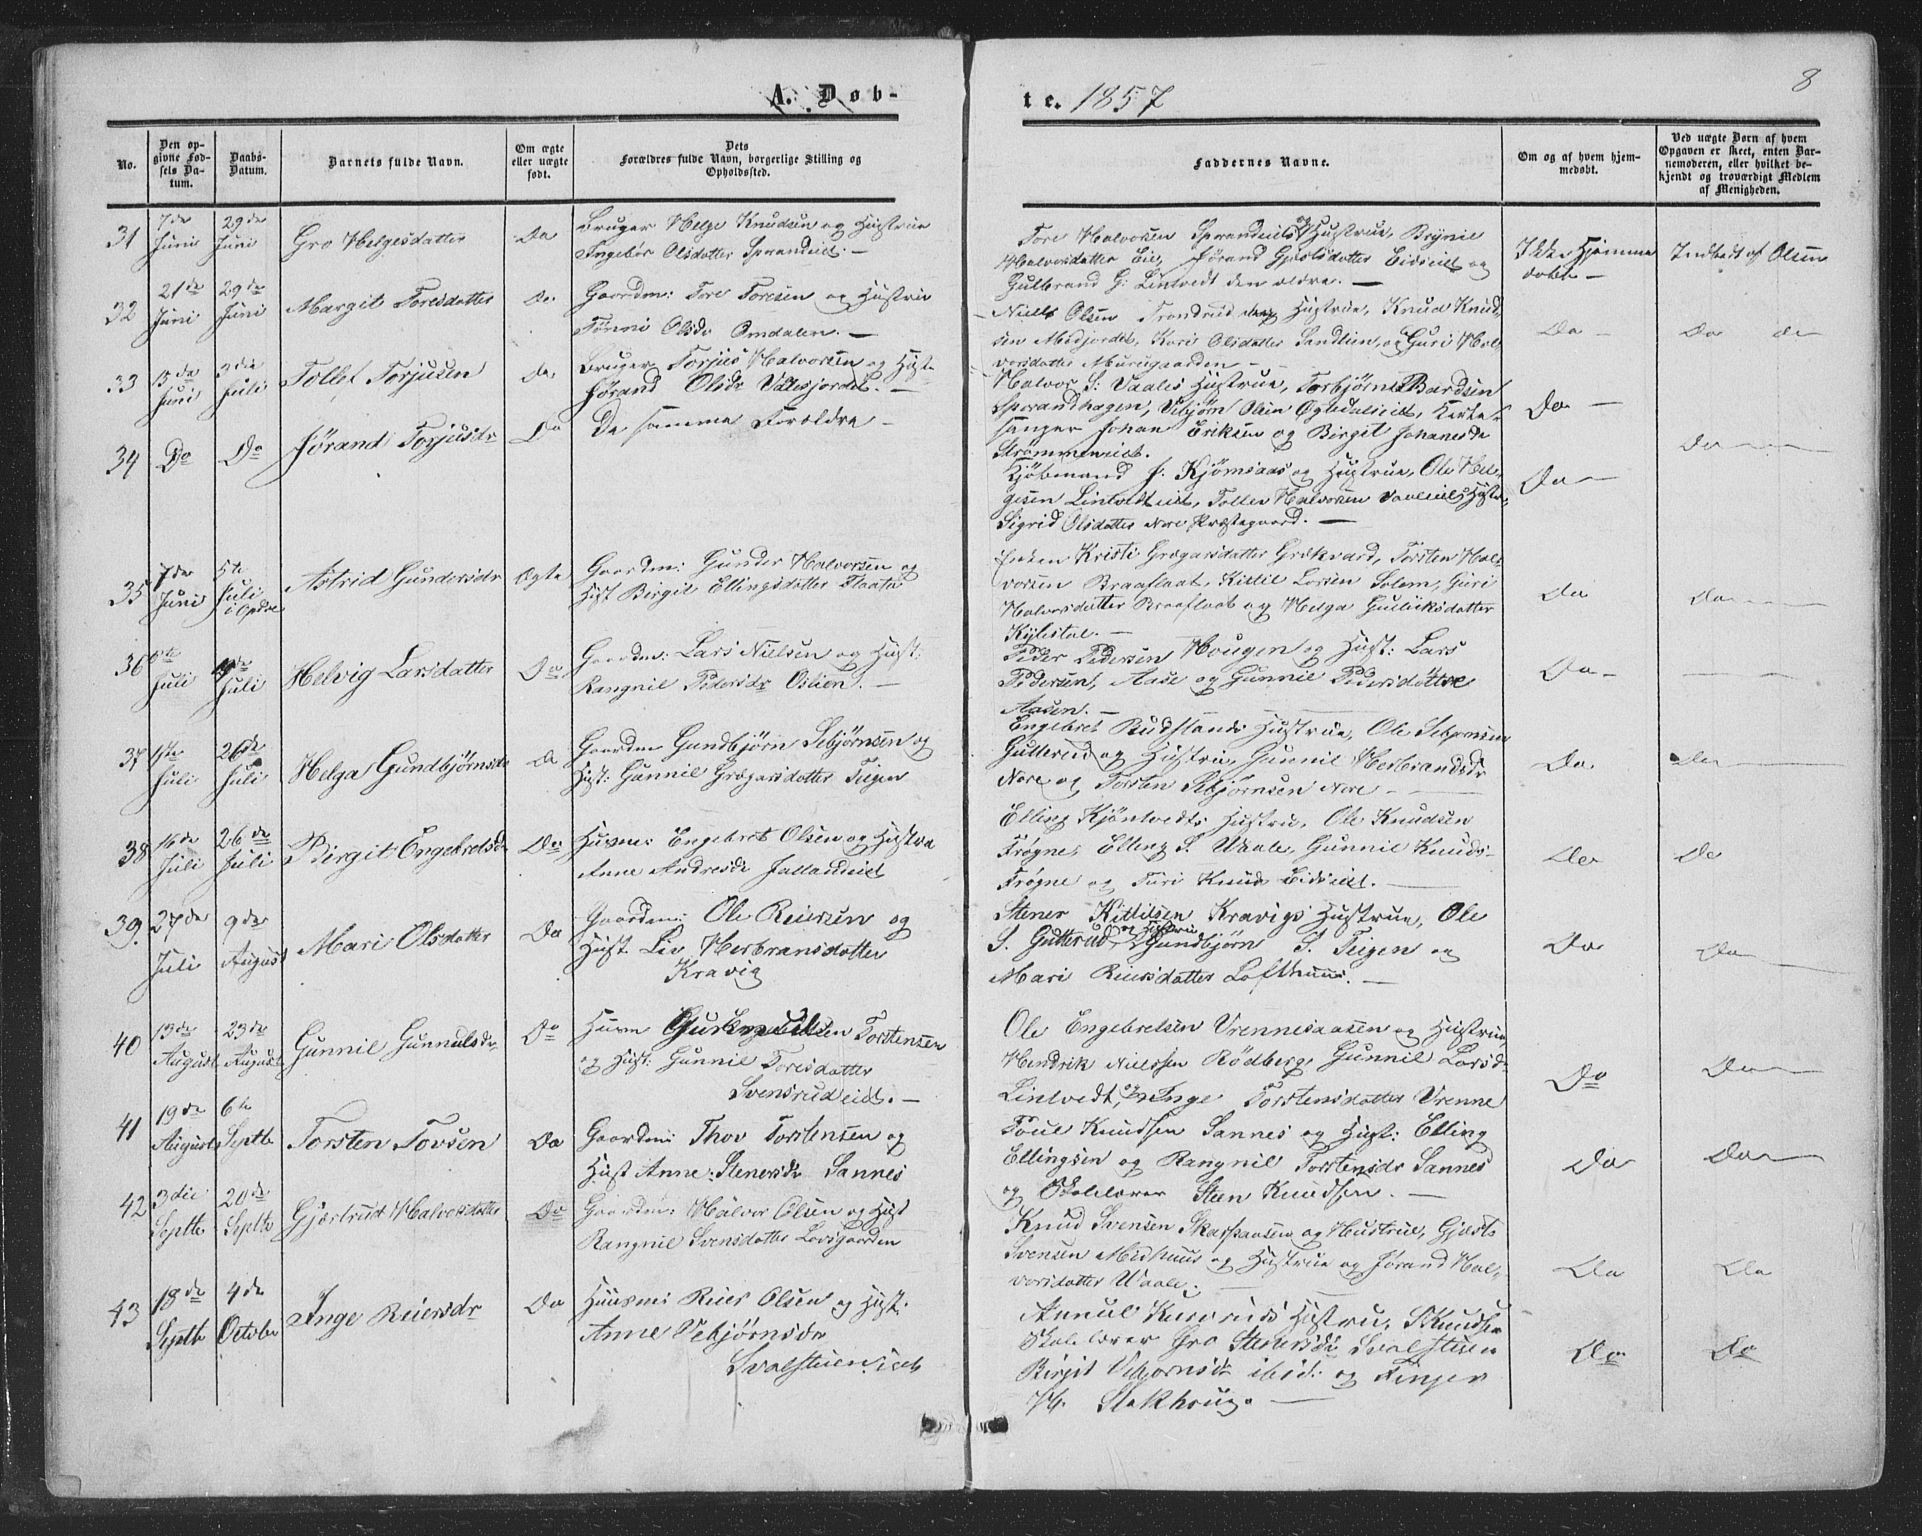 8
A. Døb-
te. 1857
No.
Den op-
givne Fød-
sels Da-
tum.
Daabs-
Datum.
Barnets fulde Navn.
Om ægte
eller uægte
født.
Dets
Forældres fulde Navn, borgerlige Stilling og
Opholdssted.
Faddernes Navne.
Om og af hvem hjem-
medøbt.
Ved uægte Børn af hvem
Opgaven er skeet, enten Bar-
nemoderen, eller hvilket be-
kjendt og troværdigt Medlem
af Menigheden.
31
7de
Juni
29de
Juni
Gro Helgesdatter
Do
Bruger Helge Knudsen og Hustrue
Ingebor Olsdatter Sprandeiet. —
Tore Halvorsen Sprandeiets Hustrue,
Halvorsdatter Eie, Jørand Gjestsdatter Eidseiet og
Gulbrand G: Lintvedt den ældre. —
Ikke Hjemme
døbt —
Indbedt af Olsen
32
21de
Juni
29de
Juni
Margit Toresdatter
Do
Gaardm: Tore Toresen og Hustrue
Tønni Olsdr Omdalen. —
Niels Olsen Trondrud og Hustrue, Knud Knud-
sen Medjordet, Kari Olsdatter Sandlien, og Guri Hal-
vorsdatter —
Do —
Do do
33
13de
Juni
3die
Juli
Tollef Torjusen
Do
Bruger Torjus Halvorsen og Hust.
Jørand Olsdr —
Halvor S: Vaales Hustrue, Torbjørn Bardsen
Sporandhagen, Vebjørn Olsen Kirke-
sanger Johan Eriksen og Birgit
Strømmeneiet.
Do —
34
Do
Do
Jørand Torjusdr
Do
De samme Forældre —
Kjøbmand J: Kjømsaas og Hustrue, Ole Hel-
gesen Lintvedteiet, Tollev Halvorsen
Sigrid Olsdatter Nore Præstegaard. —
Do —
Do —
35
7de
Juni
5te
Juli
i Opdal
Astrid Gundersdr
Ægte
Gaardm: Gunder Halvorsen og
Hust Birgit Ellingsdatter Flaata
Enken Kristi Grægarsdatter Grøkvard, Torsten Hal-
vorsen Braaflaat, Kittil Larsen Solem, Guri
Halvorsdatter Braaflaat og Helga Gulliksdatter
Do
Do —
36
Juli
Juli
Helvig Larsdatter
Do
Gaardm: Lars Nielsen og Hust:
Rangnil Pedersdr Oslien. —
Peder Pedersen Hougen og Hust: Lars
Pedersen, Aase og Gunnil Pedersdatter
Aasen. —
Do —
37
Juli
26de
Juli
Helga Gundbjørnsdr
Do
Gaardm Gundbjørn Sebjørnsen og
Hust: Gunnil Grægarsdatter Teigen
Engebret Rudslands Hustrue, Ole Sebjørnsen
Gutterud og Hustrue, Gunnil Herbrandsdr
Nore og Torsten Sebjørnsen Nore —
Do.
Do —
38
16de
Juli
26de
Juli
Birgit Engebretsdr
Do
Husm: Engebret Olsen og Hustrue
Anne Andresdr
Elling Kjøntvedts Hustru, Ole Knudsen
Frøgne, Elling S. Vaale, Gunnil Knuds-
Frøgne og Turi Knud Eidseiet. —
Do
Do
39.
27de
Juli
9de
August
Mari Olsdatter
Do
Gaardm: Ole Reiersen og
Hust. Liv Herbransdatter
Kravig
Stener Kittilsen Kravigs Hustrue, Ole
S. Gutterud og Hustrue, Gundbjørn S. Teigen og
Mari Reiersdatter Lofthuus. —
Do
Do —
40
13de
August
23de
August
Gunnil Gunnulsdr
Do
Husm Torstensen
og Hust: Gunnil Toresdatter
Svensrudeiet. —
Ole Engebretsen Vrennesaasen og Hustrue
Hendrik Nielssen Rødberg, Gunnil Larsd
Lintvedt, og Inge Torstensdatter Vrenne
Do
Do —
41
19de
August
6te
Septb
Torsten Tovsen
Do
Gaardm: Thov Torstensen og
Hust Anne Stenersdr Sannes
Poul Knudsen Sannes og Hust: Elling
Ellingsen og Rangnil Torstensdr Sannes
og Skolelærer Sten Knudsen. —
Do
Do —
42
3die
Septb
20de
Septb
Gjertrud Halvorsdatter
Do
Gaardm: Halvor Olsen og Hust
Rangnil Svensdatter Lovsgaarden
Knud Svensen Skarpaasen og Hustrue, Gjest
Svensen Medhuus og Hustrue og Jørand Hal-
vorsdatter Vaale. —
Do
Do
43
18de
Septb
4de
October
Inge Reiersdr
Do
Huusm: Reier Olsen og Hust.
Anne Vebjørnsdr
Svalsteineiet
Annul Hustru, S Knudsen
Skolelærer Gro Stenersdr Svalsteien
Birgit Vebjørnsdr ibid: og Finger
H. Stakhrug. —
Do
Do